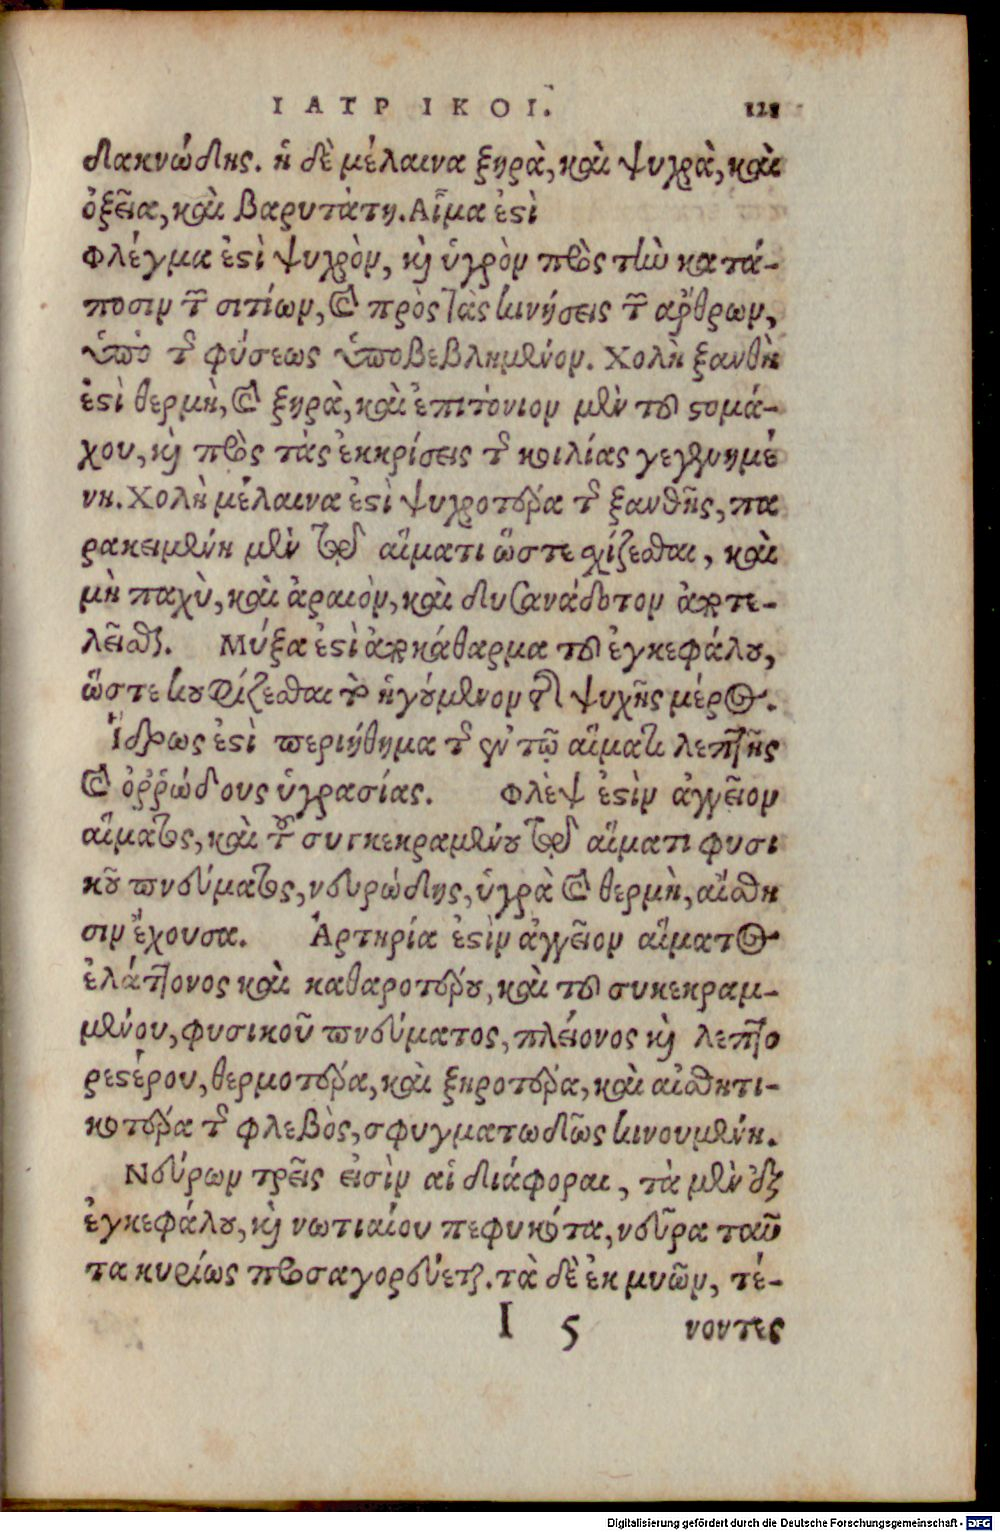 ΙΑΤΡΙΚΟΙ. 121
δακνώδης. ἡ δὲ μέλαινα ξηρὰ, καὶ ψυχρὰ, καὶ
ὀξεῖα, καὶ βαρυτάτη. Αἷμα ἐστὶ
Φλέγμα ἐστὶ ψυχρὸν, καὶ ὑγρὸν πρὸς τὴν κατά-
ποσιν τῶν σιτίων, καὶ πρὸς τὰς κινήσεις τῶν ἄρθρων,
ὑπὸ τῆς φύσεως ὑποβεβλημένον. Χολὴ ξανθὴ
ἐστὶ θερμὴ, καὶ ξηρὰ, καὶ ἐπιτόνιον μὲν τοῦ στομά-
χου, καὶ πρὸς τὰς ἐκκρίσεις τῆς κοιλίας γεγενημέ
νη. Χολὴ μέλαινα ἐστὶ ψυχροτέρα τῆς ξανθῆς, πα
ρακειμένη μὲν τῷ αἵματι ὥστε σχίζεσθαι, καὶ
μὴ παχὺ, καὶ ἀραιὸν, καὶ δυσανάδοτον ἀποτε-
λεῖσθαι. Μύξα ἐστὶ ἀποκάθαρμα τοῦ ἐγκεφάλου,
ὥστε κουφίζεσθαι τὸ ἡγούμενον τῆς ψυχῆς μέρος.
Ἱδρως ἐστὶ περιήθημα τῆς ἐν τῷ αἵματι λεπτῆς
καὶ ὀῤῥώδους ὑγρασίας. Φλὲψ ἐστὶν ἀγγεῖον
αἵματος, καὶ τοῦ συγκεκραμένου τῷ αἵματι φυσι
κοῦ πνεύματος, νευρώδης, ὑγρὰ καὶ θερμὴ, αἴσθη
σιν ἔχουσα. Ἀρτηρία ἐστὶν ἀγγεῖον αἵματος
ἐλάττονος καὶ καθαροτέρου, καὶ τοῦ συκεκραμ-
μένου, φυσικοῦ πνεύματος, πλείονος καὶ λεπτο
ρεστέρου, θερμοτέρα, καὶ ξηροτέρα, καὶ αἰσθητι-
κοτέρα τῆς φλεβὸς, σφυγματωδῶς κινουμένη.
Νεύρων τρεῖς εἰσὶν αἱ διάφοραι, τὰ μὲν ἐξ
ἐγκεφάλου, καὶ νωτιαίου πεφυκότα, νεῦρα ταῦ
τα κυρίως προσαγορεύεται. τὰ δὲ ἐκ μυῶν, τέ-
I 5 νοντες
Digitalisierung gefördert durch die Deutsche Forschungsgemeinschaft - DFG